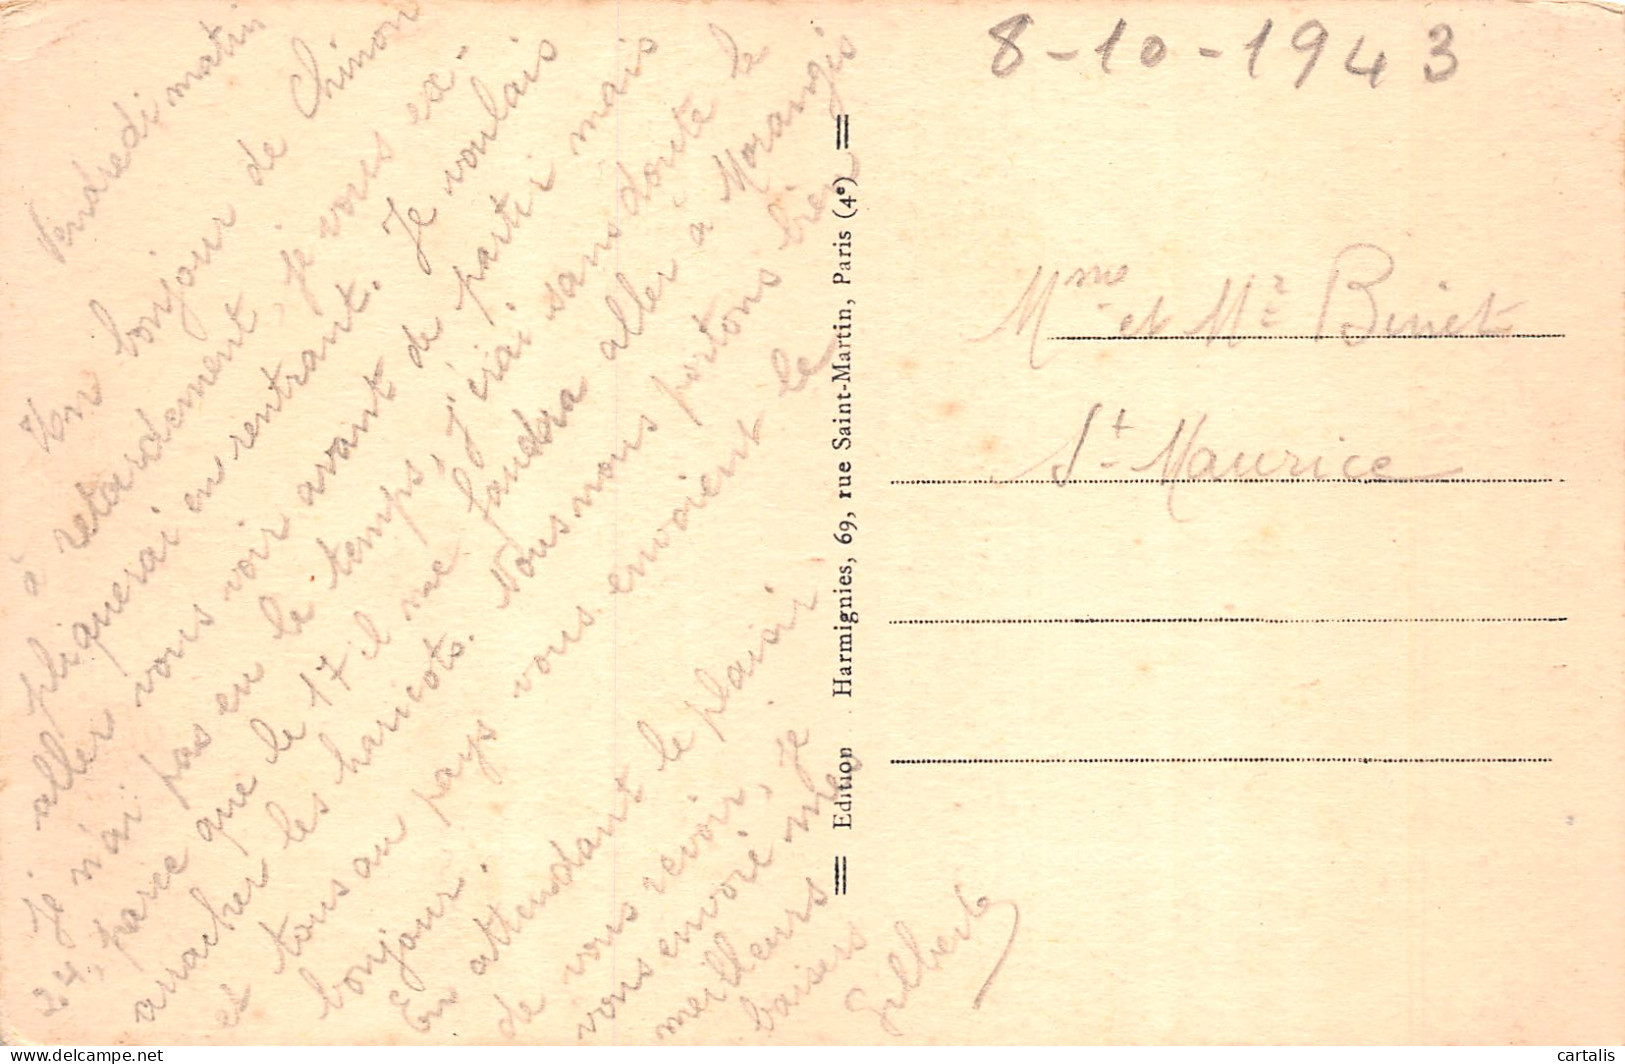 8-10-1943
Vendredi matin
Un bonjour de Chinon
à retardement, je vous ex-
pliquerai en rentrant. Je voulais
aller vous voir avant de partir mais
je n'ai pas eu le temps, j'irai sans doute le
24, parce que le 17 il me faudra aller à Morangis
arracher les haricots. Nous nous portons bien
et tous au pays vous envoient le
bonjour.
En attendant le plaisir
de vous revoir, je
vous envoie mes
meilleurs
baisers
Gilberte
Edition Harmignies, 69, rue Saint-Martin, Paris (4e)
Mme et Mr Binet
St-Maurice
cartalis